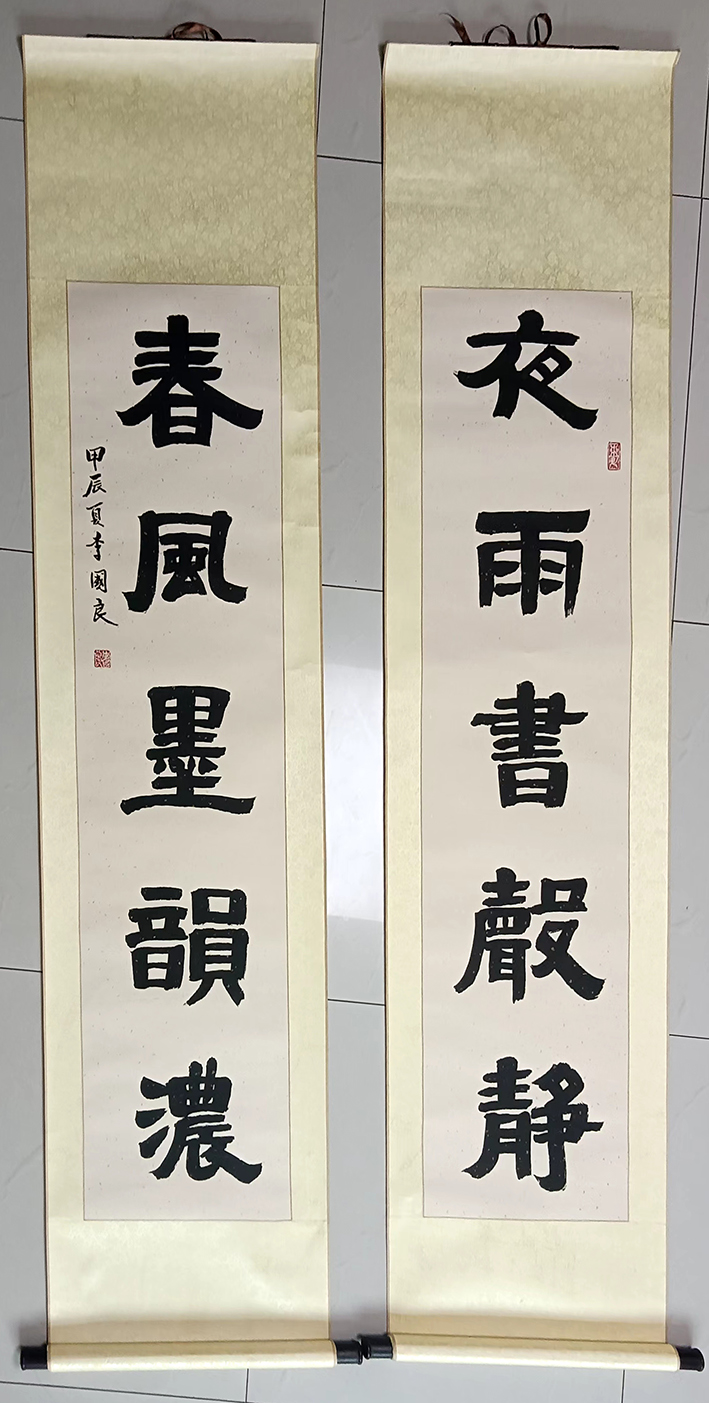 夜雨書聲靜
春風墨韻濃
甲辰夏李國良